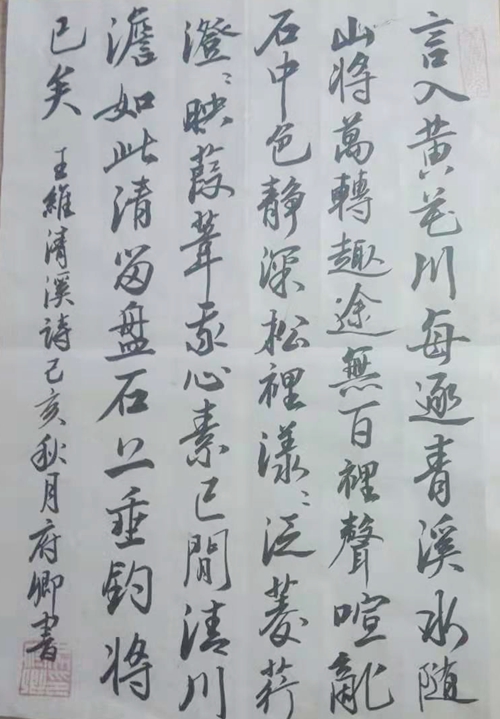 言入黄花川每逐青溪水随
山将萬轉趣途無百裡聲喧亂
石中色静深松裡漾〻泛菱荇
澄〻映葭葦我心素已閒清川
澹如此清留盤石上垂钓将
已矣 王維清溪詩己亥秋月府卿書